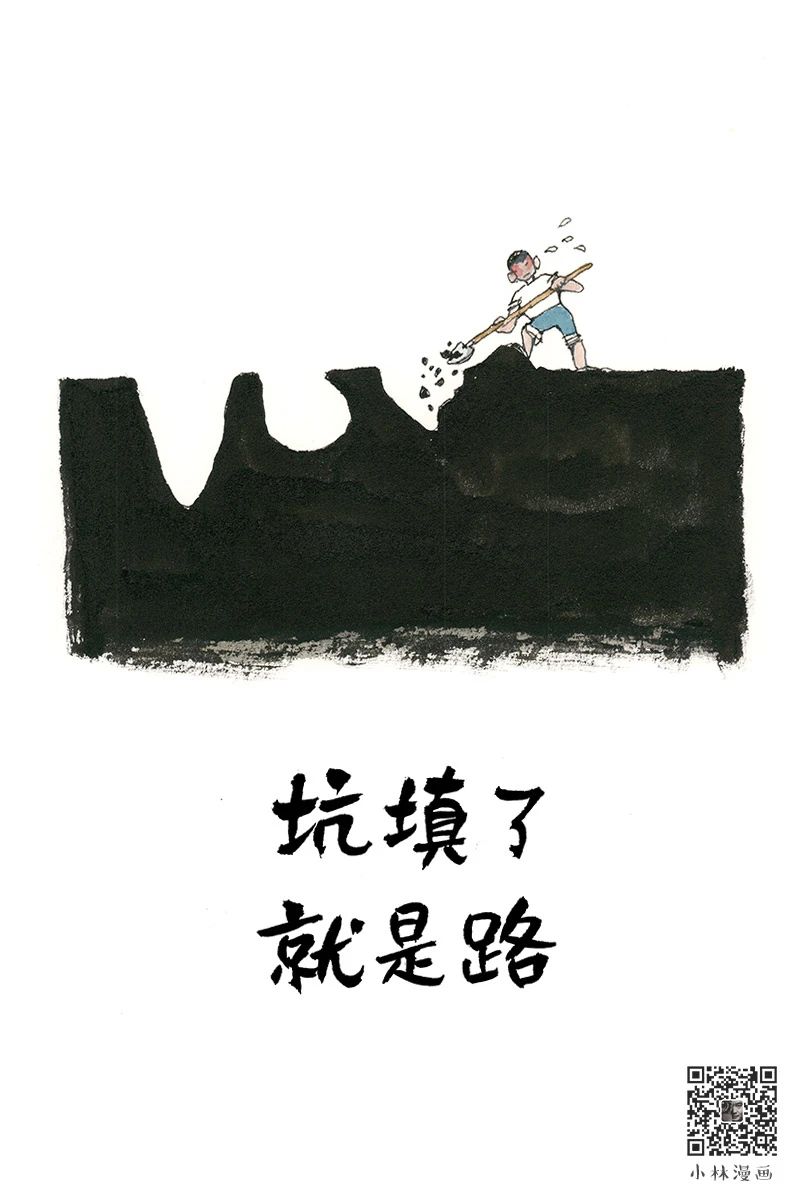 坑填了
就是路
小林漫画